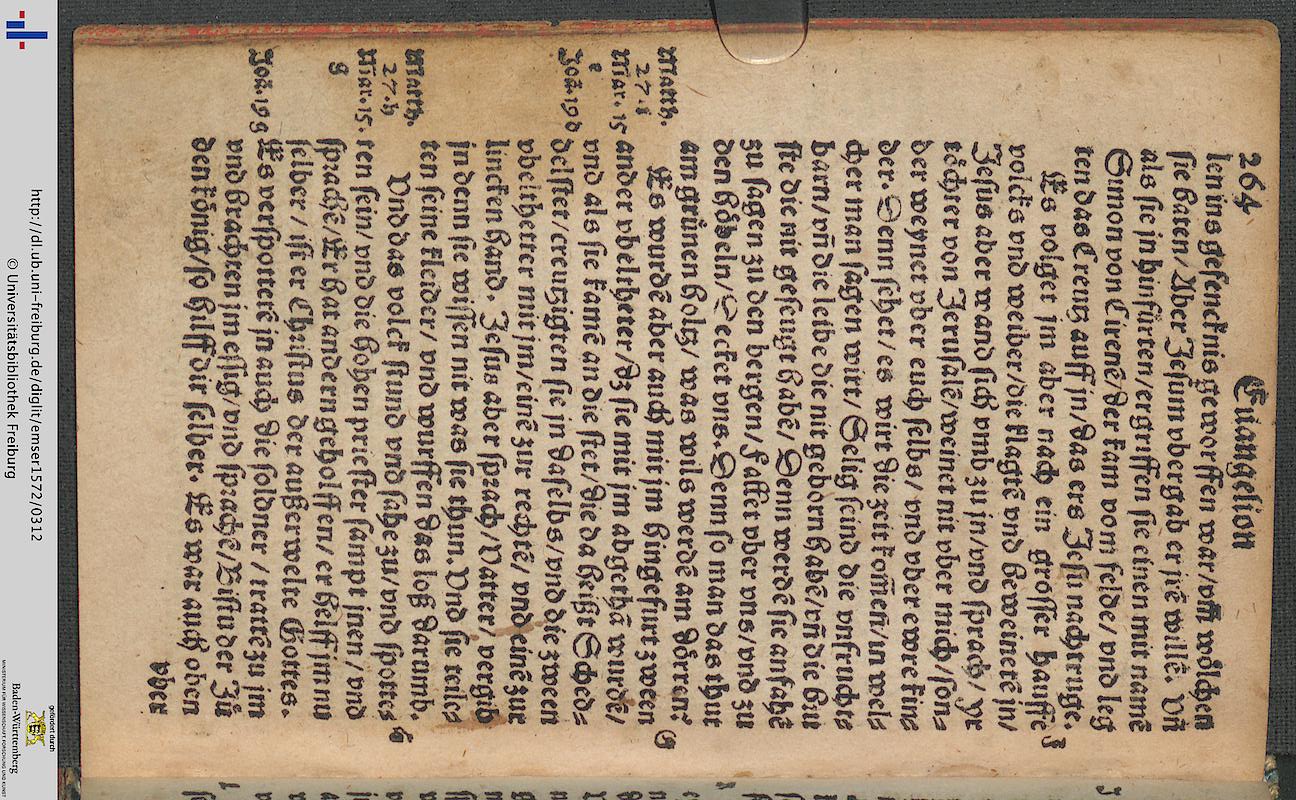 264 Euangelion
len ins gefencknis geworffen war/vñ wölchen
sie baten/Aber Jesum vbergab er jrē willē. Vñ
als sie jn hinfürten/ergriffen sie einen mit namē
Simon von Cirenē/der kam vom felde/vnd leg
ten das Creutz auff jn/das ers Jesu nachtruge.
Es volget jm aber nach ein grosser hauffē
volcks vnd weiber/die klagtē vnd beweinetē jn/
Jesus aber wand sich vmb zu jn/vnd sprach/ yr
töchter von Jerusalē/weinet nit vber mich/son=
der weynet vber euch selbs/ vnd vber ewre kin=
der. Denn sehet/es wirt die zeit komen/in wel=
cher man sagen wirt/Selig seind die vnfrucht=
barn/vñ die leibe die nit geborn habē/vñ die brü
ste die nit geseugt habē/Denn werdē sie anfahē
zu sagen zu den bergen/fallet vber vns/vnd zu
den hübeln/Decket vns. Denn so man das thut
am grünen holtz/was wils werdē am dörren?
Es wurdē aber auch mit jm hingefürt zween
ander vbeltheter/dz sie mit jm abgethā wurdē/
vnd als sie kamē an die stet/die da heißt Sched=
delstet/creutzigten sie jn daselbs/vnd die zween
vbeltheter mit jm/einē zur rechtē/ vnd einē zur
lincken hand. Jesus aber sprach/Vatter/ vergib
jn denn sie wissen nit was sie thun. Vnd sie tey=
ten seine kleider/ vnd wurffen das loß darumb.
Vnd das volck stund vnd sahe zu/vnd spotte=
ten sein/ vnd die hohen priester sampt jnen/vnd
sprachē/Er hat andern geholffen/ er helff jm nu
selber/ ist er Christus der außerwelte Gottes.
Es verspottetē jn auch die soldner/ tratē zu jm
vnd brachten jm essig/vnd sprachē/Bistu der Jü
den könig/so hilff dir selber. Es war auch oben
vber
Matth.
27.f
Mar. 15
e
Joā. 19 d
Matth.
27.h
Mar. 15.
g
Joā. 19 g
J
G
http://dl.ub.uni-freiburg.de/diglit/emser1572/0312
© Universitätsbibliothek Freiburg
gefördert durch
Baden-Württemberg
MINISTERIUM FÜR WISSENSCHAFT, FORSCHUNG UND KUNST